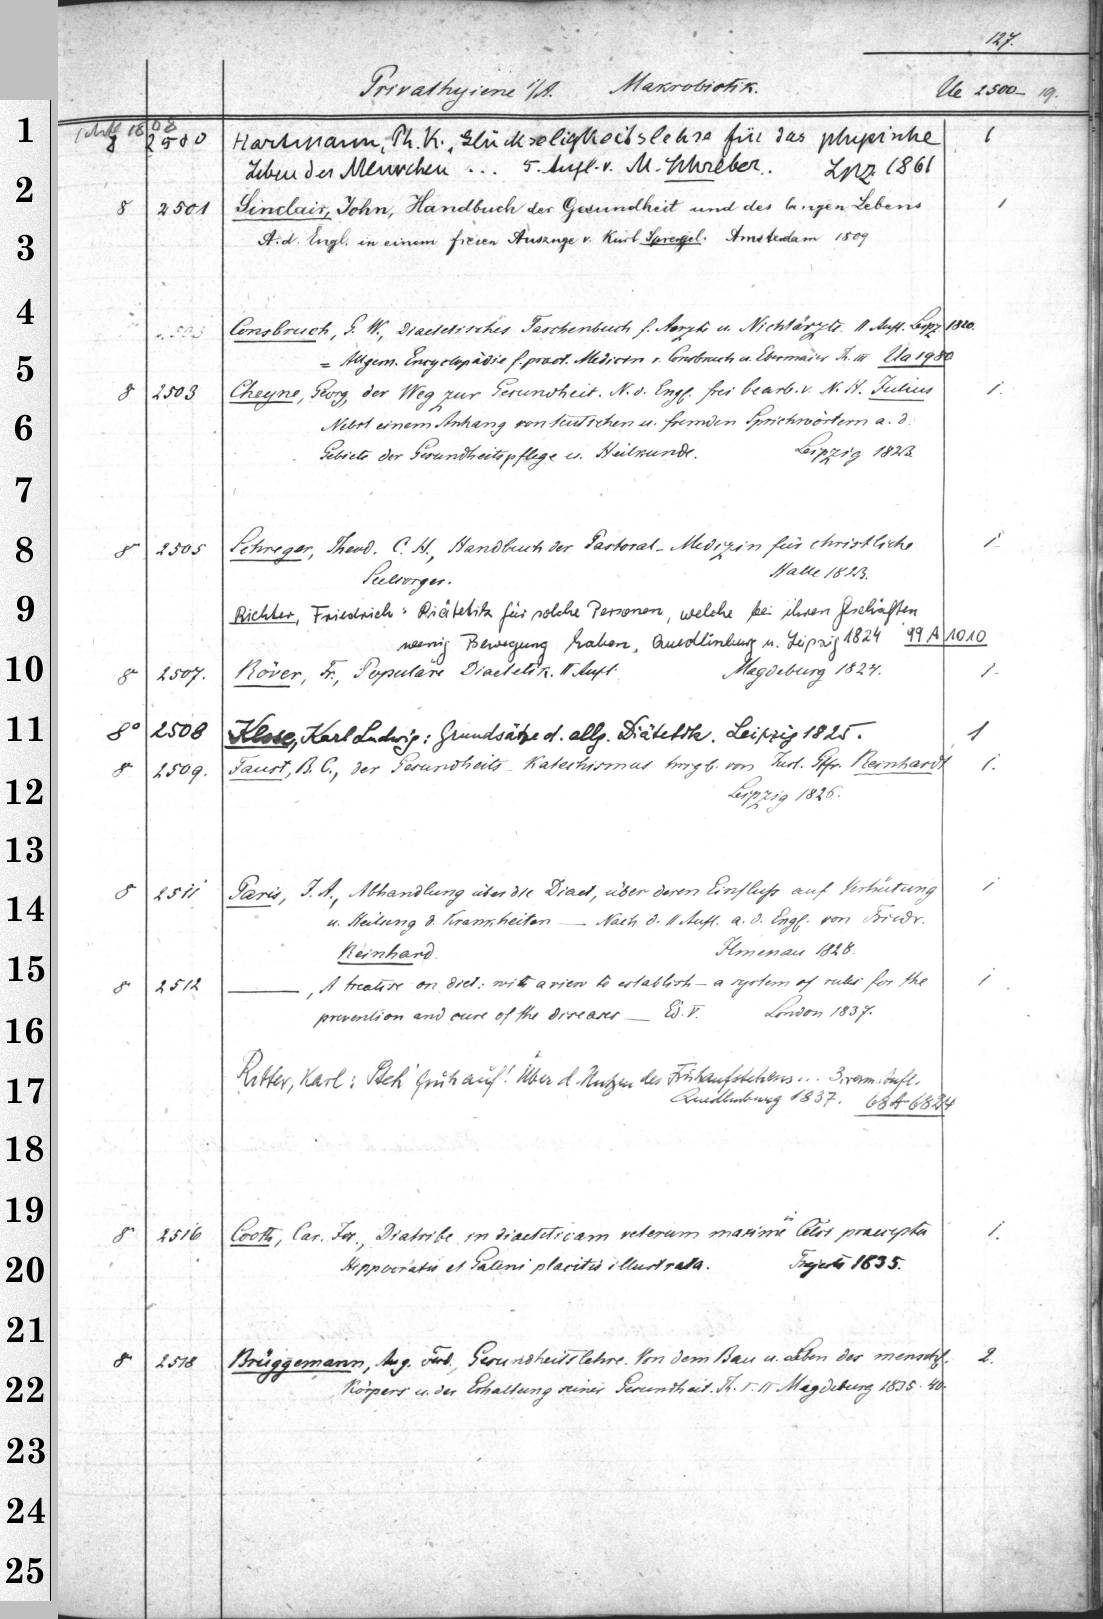 127.
Privathygiene i/A. Makrobiotik. Ue 2500 - 19.
1
8 2500 Hartmann, Ph. K., Glückseligkeitslehre für das physische 1
2
Leben des Menschen ... 5. Aufl. v. M. Schreber. Lpz. 1861
8 2501 Sinclair, John, Handbuch der Gesundheit und des langen Lebens 1
3
A. d. Engl. in einem freien Auszuge v. Kurt Sprengel. Amsterdam 1809
4
2503 Consbruch, G. W., Diaetetisches Taschenbuch f. Aerzte u. Nichtärzte. II Aufl. Leipz 1820.
5
= Allgem. Encyclopädie f. pract. Medicin v. Consbruch u. Ebermaier Th. III Ua 1980
8 2503 Cheyne, Georg, der Weg zur Gesundheit. N. d. Engl. frei bearb. v. N. H. Julius 1.
6
Nebst einem Anhang von teutschen u. fremden Sprichwörtern a. d.
Gebiete der Gesundheitspflege u. Heilkunde. Leipzig 1823.
7
8
8 2505 Schreger, Theod. C. H., Handbuch der Pastoral-Medizin für christliche 1.
Seelsorger. Halle 1823.
9
Richter, Friedrich: Diätetik für solche Personen, welche bei ihren Geschäften
wenig Bewegung haben, Quedlinburg u. Leipzig 1824 99 A 1010
10
8 2507. Röver, Fr., Populäre Diaetetik. II Aufl. Magdeburg 1824. 1.
11
8° 2508 Klose, Karl Ludwig: Grundsätze d. allg. Diätetik. Leipzig 1825. 1
8 2509. Faust, B. C., der Gesundheits-Katechismus hrsgb. von Just. Gfr. Reinhardt 1.
12
Leipzig 1826.
13
8 2511 Paris, J. A., Abhandlung über die Diaet, über deren Einfluss auf Verhütung 1
14
u. Heilung d. Krankheiten — Nach d. II Aufl. a. d. Engl. von Friedr.
Reinhard. Ilmenau 1828.
15
8 2512 ———, A treatise on diet: with a view to establish - a system of rules for the 1
16
prevention and cure of the diseases — Ed. V. London 1837.
17
Ritter, Karl: Steh' früh auf! Über d. Nutzen des Frühaufstehens... 3. verm. Aufl.
Quedlinburg 1837. 68 A 6824
18
19
8 2516 Cooth, Car. Jos., Diatribe in diaeteticam veterum maxime Celsi praecepta 1.
20
Hippocratis et Galeni placitis illustrata. Trajecti 1835.
21
8 2518 Brüggemann, Aug. Ferd., Gesundheitslehre. Von dem Bau u. Leben des menschl. 2.
22
Körpers u. der Erhaltung seiner Gesundheit. Th. I-II Magdeburg 1835-40.
23
24
25